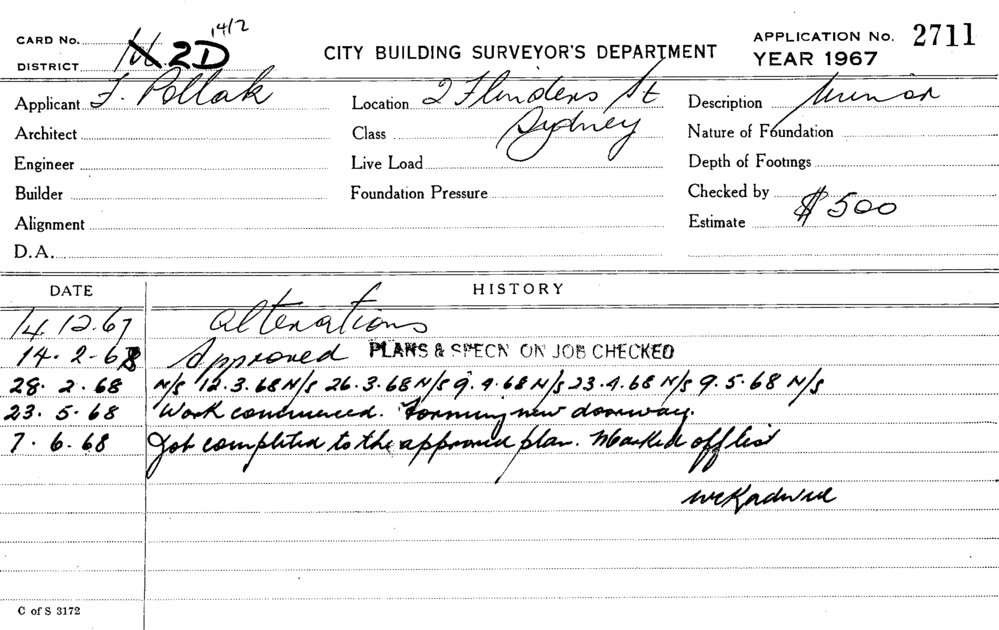 14/2
CARD No. 2D CITY BUILDING SURVEYOR'S DEPARTMENT APPLICATION No. 2711
DISTRICT YEAR 1967
Applicant F. Pollak Location 2 Flinders St Description Minor
Architect Class Sydney Nature of Foundation
Engineer Live Load Depth of Footings
Builder Foundation Pressure Checked by
Alignment Estimate $500
D.A.
DATE HISTORY
14.12.67 Alterations
14.2.68 Approved PLANS & SPECN ON JOB CHECKED
28.2.68 N/S 12.3.68 N/S 26.3.68 N/S 9.4.68 N/S 23.4.68 N/S 9.5.68 N/S
23.5.68 Work commenced. Forming new doorway.
7.6.68 Job completed to the approved plan. Marked off list
C of S 3172